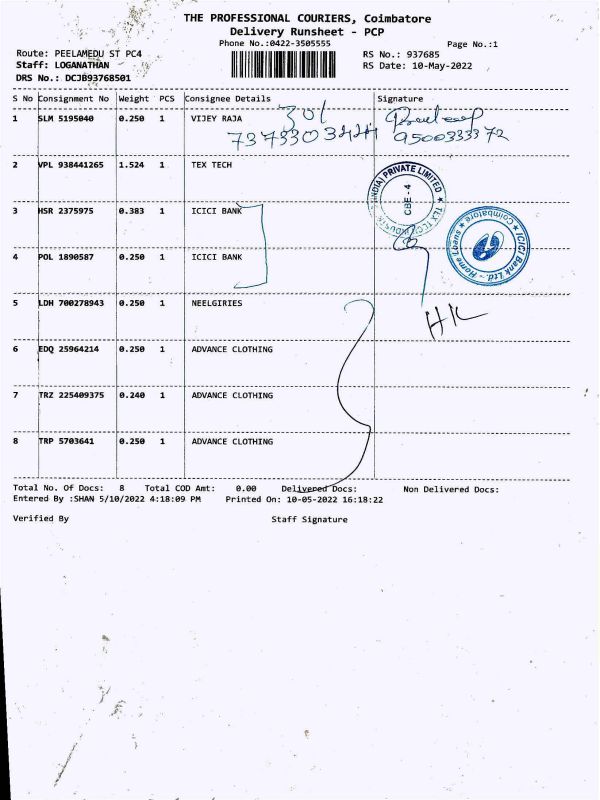 THE PROFESSIONAL COURIERS, Coimbatore
Delivery Runsheet - PCP
Phone No.:0422-3505555
Page No.:1
Route: PEELAMEDU ST PC4
RS No.: 937685
Staff: LOGANATHAN
RS Date: 10-May-2022
DRS No.: DCJB93768501
S No Consignment No Weight PCS Consignee Details Signature
1 SLM 5195040 0.250 1 VIJEY RAJA 301
7373303244 9500333372
2 VPL 938441265 1.524 1 TEX TECH
(INDIA) PRIVATE LIMITED ★ TEX TECH
CBE - 4
3 HSR 2375975 0.383 1 ICICI BANK
★ ICICI Bank Ltd. - Home Loans ★ Coimbatore
4 POL 1890587 0.250 1 ICICI BANK
5 LDH 700278943 0.250 1 NEELGIRIES
6 EDQ 25964214 0.250 1 ADVANCE CLOTHING
7 TRZ 225409375 0.240 1 ADVANCE CLOTHING
8 TRP 5703641 0.250 1 ADVANCE CLOTHING
Total No. Of Docs: 8 Total COD Amt: 0.00 Delivered Docs: Non Delivered Docs:
Entered By :SHAN 5/10/2022 4:18:09 PM Printed On: 10-05-2022 16:18:22
Verified By Staff Signature